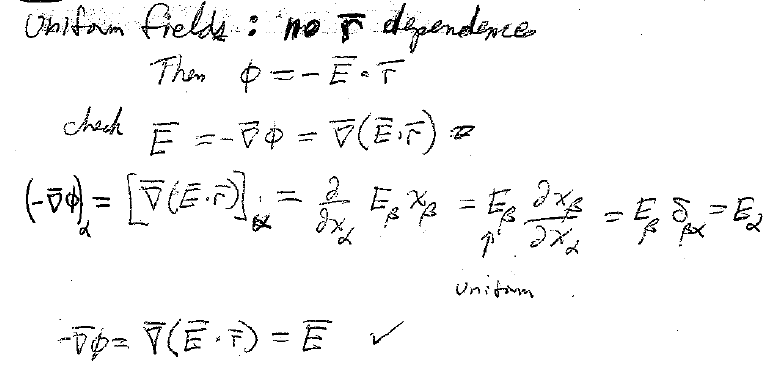 Uniform fields : no r̅ dependence
Then ϕ = - E̅ · r̅
check E̅ = - ∇̅ϕ = ∇̅(E̅·r̅) =
(-∇̅ϕ)_α = [∇̅(E̅·r̅)]_α = ∂/∂x_α E_β x_β = E_β ∂x_β/∂x_α = E_β δ_βα = E_α
↑
Uniform
-∇̅ϕ = ∇̅(E̅·r̅) = E̅ ✓